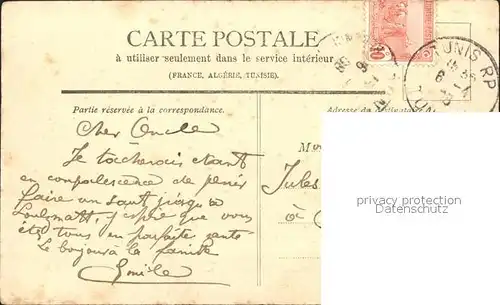 CARTE POSTALE
à utiliser seulement dans le service intérieur
(FRANCE, ALGÉRIE, TUNISIE).
TUNIS RP
Partie réservée à la correspondance.
Adresse du destinataire
Cher Oncle
Je tâcherais étant
en convalescence de
faire un saut jusqu'à
J'espère que vous
êtes tous en parfaite santé
le bonjour à la famille
Emile
Jules
à
privacy protection
Datenschutz